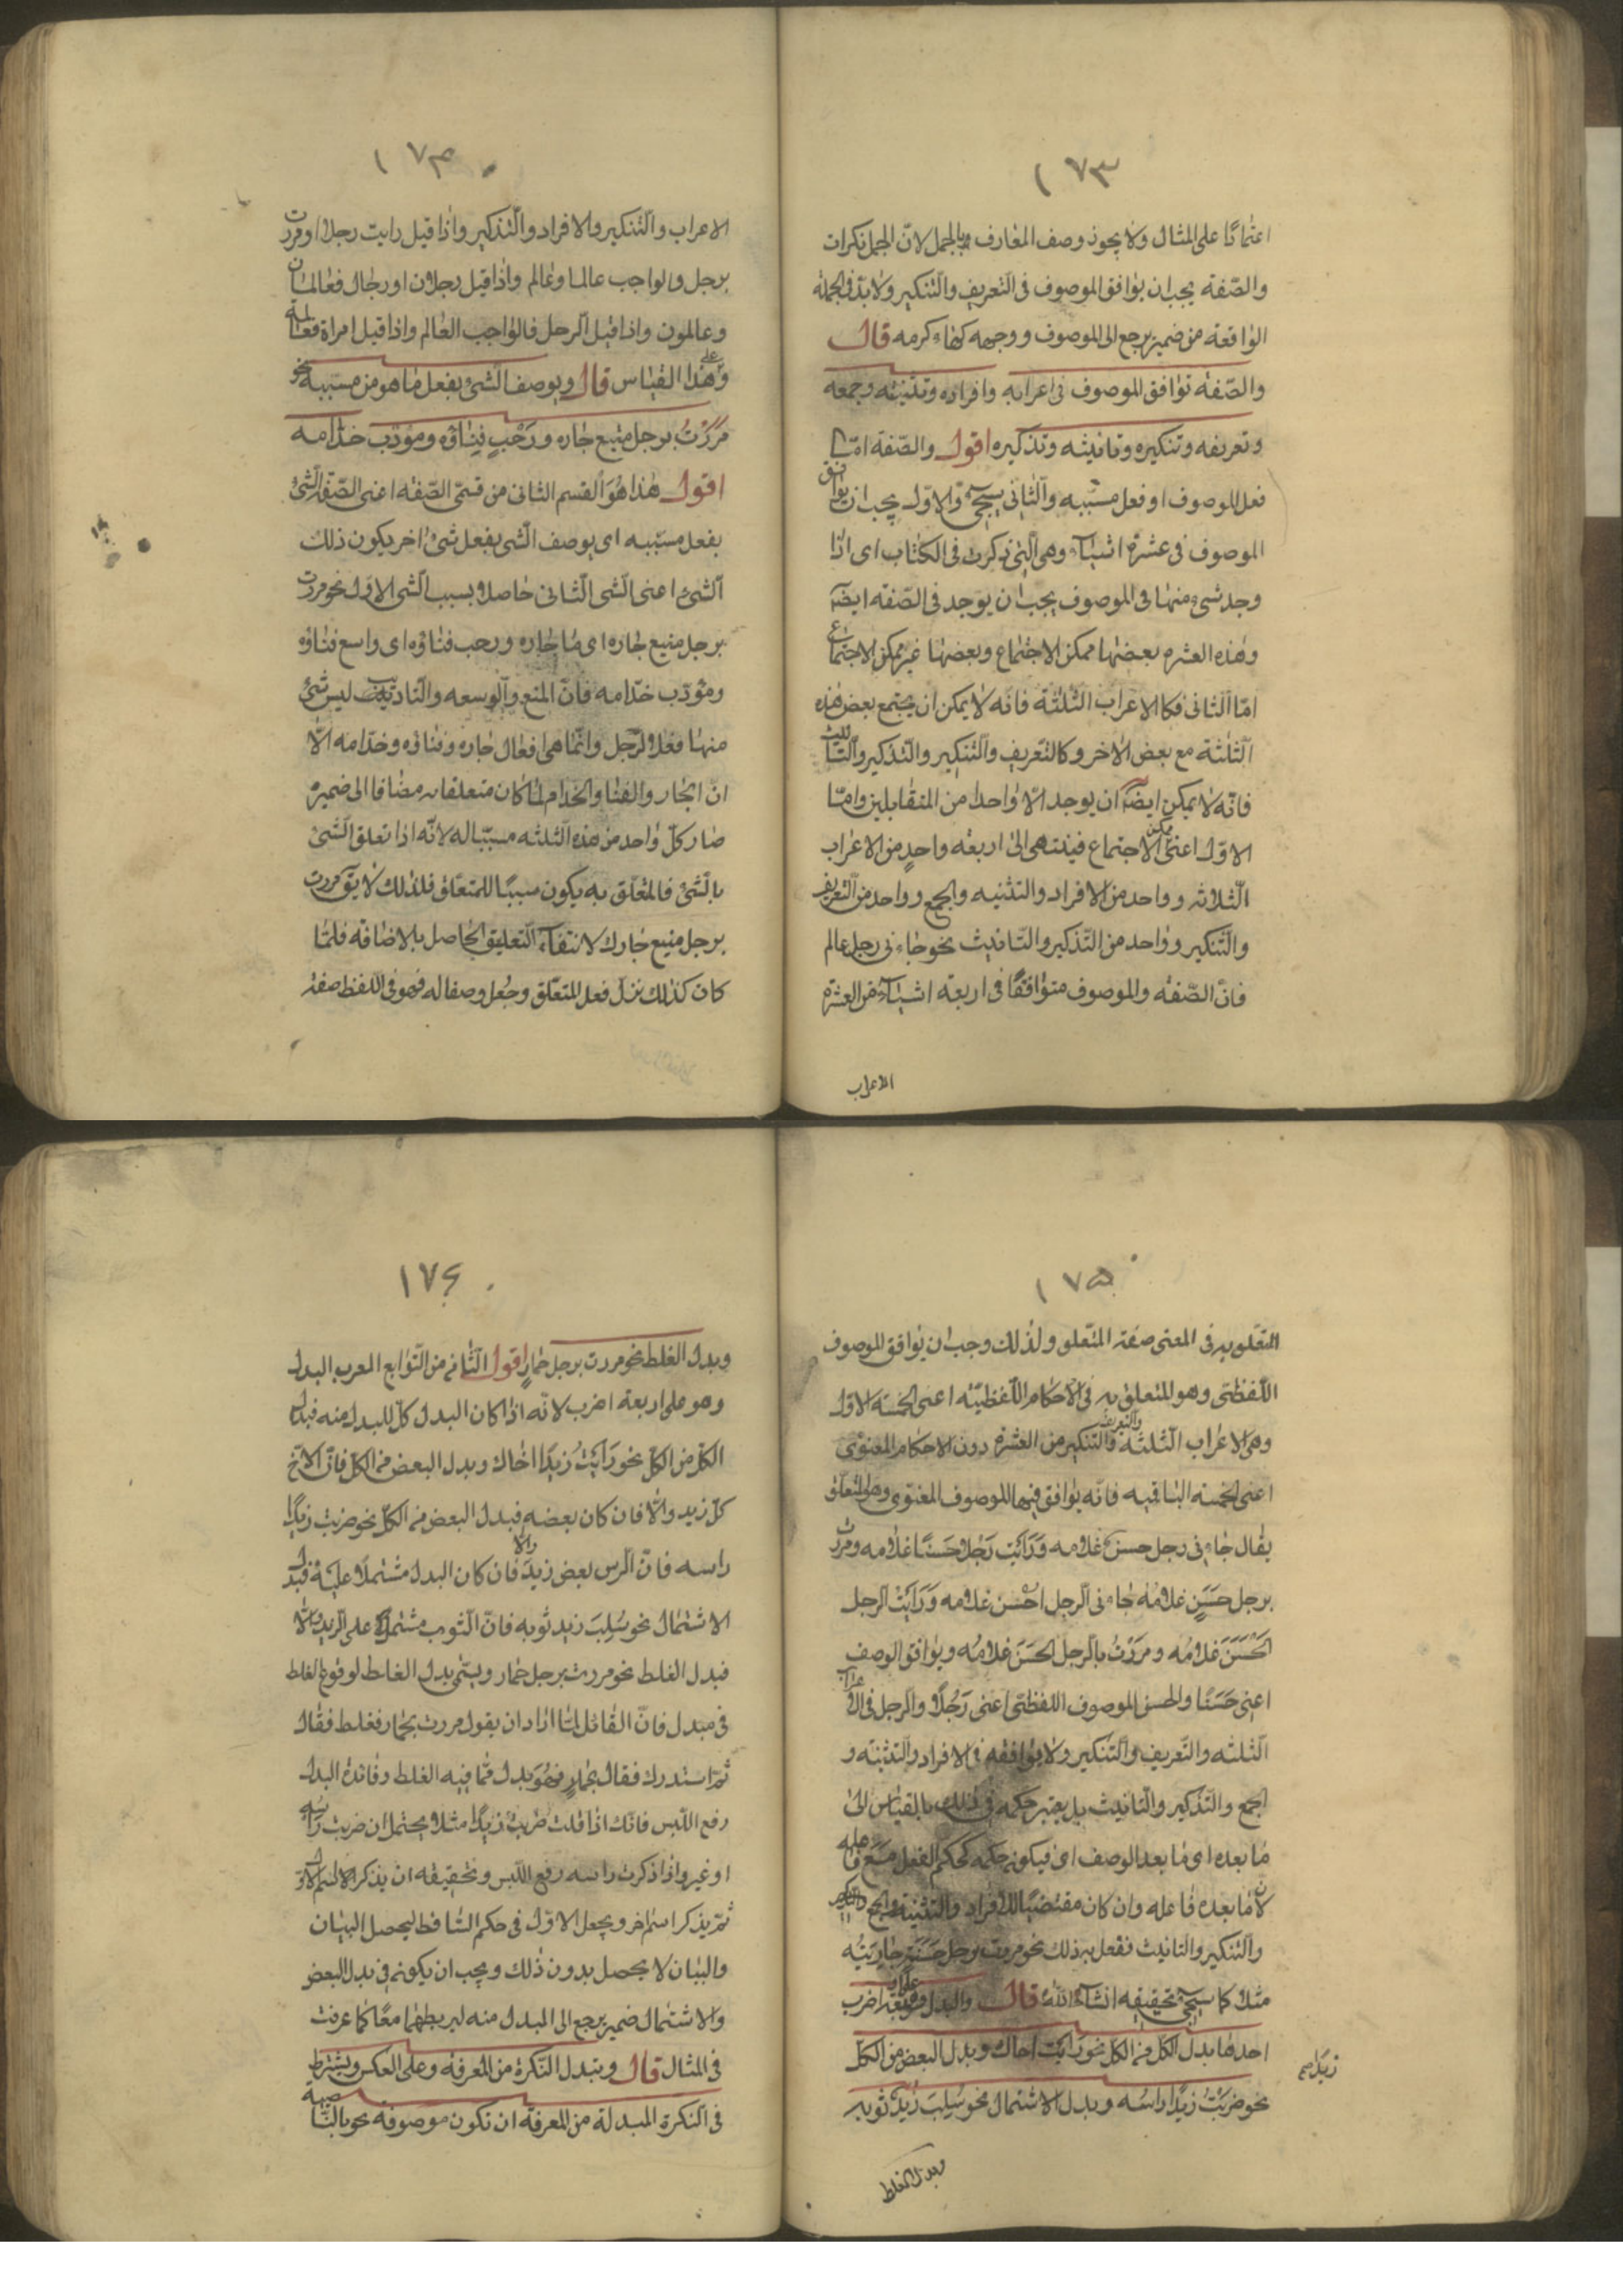 ١٧٣
اعتمادًا على المثال ولا يجوز وصف المعارف بالجمل لانّ الجمل نكرات
والصّفة يجب ان يوافق الموصوف فى التّعريف والتّنكير ولا بدّ فى الجملة
الواقعة من ضمير يرجع الى الموصوف ووجهه كهاء كرمه قال
والصّفة توافق الموصوف فى اعرابه وافراده وتثنيته وجمعه
وتعريفه وتنكيره وتانيثه وتذكيره اقول والصّفة امّا
فعل الموصوف او فعل مسبّبه والثّانى سيجئ والاوّل يجب ان يوافق
الموصوف فى عشرة اشياء وهى الّتى ذكرت فى الكتاب اى اذا
وجد شئ منها فى الموصوف يجب ان يوجد فى الصّفة ايضا
وهذه العشره بعضها ممكن الاجتماع وبعضها غير ممكن الاجتماع
امّا الثانى فكا الاعراب الثلثة فانّه لا يمكن ان يجتمع بعض هذه
الثلثة مع بعض الاخر وكالتّعريف والتّنكير والتّذكير والتّانيث
فانّه لا يمكن ايضا ان يوجد الّا واحدا من المتقابلين وامّا
الاوّل اعنى ممكن الاجتماع فينتهى الى اربعة واحدٍ من الاعراب
الثّلاثه وواحد من الافراد والتثنيه والجمع وواحد من التّعريف
والتّنكير وواحد من التّذكير والتّانيث نحو جاءنى رجل عالم
فانّ الصّفة والموصوف متوافقًا فى اربعة اشياء من العشرة
الاعراب
١٧٤
الاعراب والتّنكير والافراد والتّذكير واذا قيل رايت رجلا او مررت
برجل والواجب عالما وعالم واذا قيل رجلان او رجال فعالمان
وعالمون واذا قيل الرجل فالواجب العالم واذا قيل امراة فعالمة
وعلى هذا القياس قال ويوصف الشئ بفعل ما هو من مسبّبه نحو
مَرَرْتُ برجل منيع جاره ورَحْبٍ فِناؤه ومؤدّب خدّامه
اقول هذا هُوَ القسم الثانى من قسمَى الصّفة اعنى الصّفة الشئ
بفعل مسبّبه اى يوصف الشئ بفعل شئ اخر يكون ذلك
الشئ اعنى الشئ الثانى حاصلا بسبب الشئ الاوّل نحو مررت
برجل منيع جاره اى ما جاره ورحب فناؤه اى واسع فناؤه
ومؤدّب خدّامه فانّ المنع والوسعه والتّاديب ليس شئ
منها فعل الرّجل وانّما هى افعال جاره وفنائه وخدّامه الّا
انّ الجار والفنا والخدام لمّا كان متعلقا به مضافا الى ضميره
صار كلّ واحد من هذه الثلثه مسبّبا له لانّه اذا تعلق الشئ
بالشئ فالمتعلّق به يكون سببًا للمتعلّق فلذلك لا يق مررت
برجل منيع جارك لانتفاء التعليق الحاصل بالاضافة فلمّا
كان كذلك نزل فعل المتعلّق وجُعل وصفا له فهو فى اللفظ صفة
١٧٥
المتعلّق به فى المعنى صفة المتعلق ولذلك وجب ان يوافق الموصوف
اللّفظى وهو المتعلق به فى الاحكام اللّفظيّه اعنى الخمسة الاوّل
وهى الاعراب الثلثه والتّعريف والتّنكير من العشرة دون الاحكام المعنوى
اعنى الخمسه الباقيه فانّه يوافق فيها الموصوف المعنوى وهو المتعلّق
يقال جاءنى رجل حسنٌ غلامه وَرَاَيت رَجُلا حَسنًا غلامه ومررت
برجل حَسَنٍ غلامُه جاءنى الرجل احْسن غلامه وَرَاَيْت الرجل
الحَسَنَ غلامُه ومررْتُ بالرجل الحسَن غلامُه ويوافق الوصف
اعنى حَسَنًا والحسن الموصوف اللفظى اعنى رَجُلًا والرجل فى الاعراب
الثلثه والتّعريف والتّنكير ولا يوافقه فى الافراد والتثنيه و
الجمع والتّذكير والتّانيث بل يعتبر حكمه فى ذلك بالقياس الى
ما بعده اى ما بعد الوصف اى فيكون حكمه كحكم الفعل مَعَ فاعله
لان ما بعده فاعله وان كان مقتضيًا للافراد والتثنية والجمع والتذكير
والتّنكير والتانيث فعل به ذلك نحو مررت برجل حَسَنةٍ جاريتُه
مثلا كما سيجئ تحقيقه انشاء الله قال والبدل وهو على اربعة اضرب
احدها بدل الكل من الكل نحو رَاَيت اخاك وبدل البعض من الكلّ
زيدا صح
نحو ضربْتُ زيدًا راسَه وبدل الاشتمال نحو سُلِبَ زيدٌ ثوبه
وبدل الغلط
١٧٦
وبدل الغلط نحو مررت برجل حمارٍ اقول الثّانى من التّوابع المعرب البدل
وهو على اربعة اضرب لانّه اذا كان البدل كلّ المبدل منه فبدل
الكلّ من الكلّ نحو رَاَيْتُ زيدًا اخاك وبدل البعض من الكل فانّ الاخ
كلّ زيد والّا فان كان بعضه فبدل البعض من الكلّ نحو ضربت زيدًا
راسه فانّ الرس بعض زيد والّا فان كان البدل مشتملًا عليه فبدل
الاشتمال نحو سُلِبَ زيد ثوبه فانّ الثوب مشتملًا على الزيد والّا
فبدل الغلط نحو مررت برجل حمار ويسمّى بدل الغلط لوقوع الغلط
فى مبدل فانّ القائل لمّا اراد ان يقول مررت بحمار فغلط فقال
ثمّ استدرك فقال بحمارٍ فهُوَ بدل ممّا فيه الغلط وفائدة البدل
رفع اللّبس فانّك اذا قلت ضربتُ زيدًا مثلا يحتمل ان ضربت راسه
او غيره واذا ذكرت راسه رفع اللّبس وتحقيقه ان يذكر الاسم الاوّل
ثمّ يذكر اسم اخر ويجعل الاوّل فى حكم السّاقط ليحصل البيان
والبيان لا يحصل بدون ذلك ويجب ان يكون فى بدل البعض
والاشتمال ضمير يرجع الى المبدل منه ليربطهما معًا كما عرفت
فى المثال قال وتبدل النّكرة من المعرفة وعلى العكس ويشترط
فى النّكرة المبدلة من المعرفة ان تكون موصوفه نحو بالنّاصية